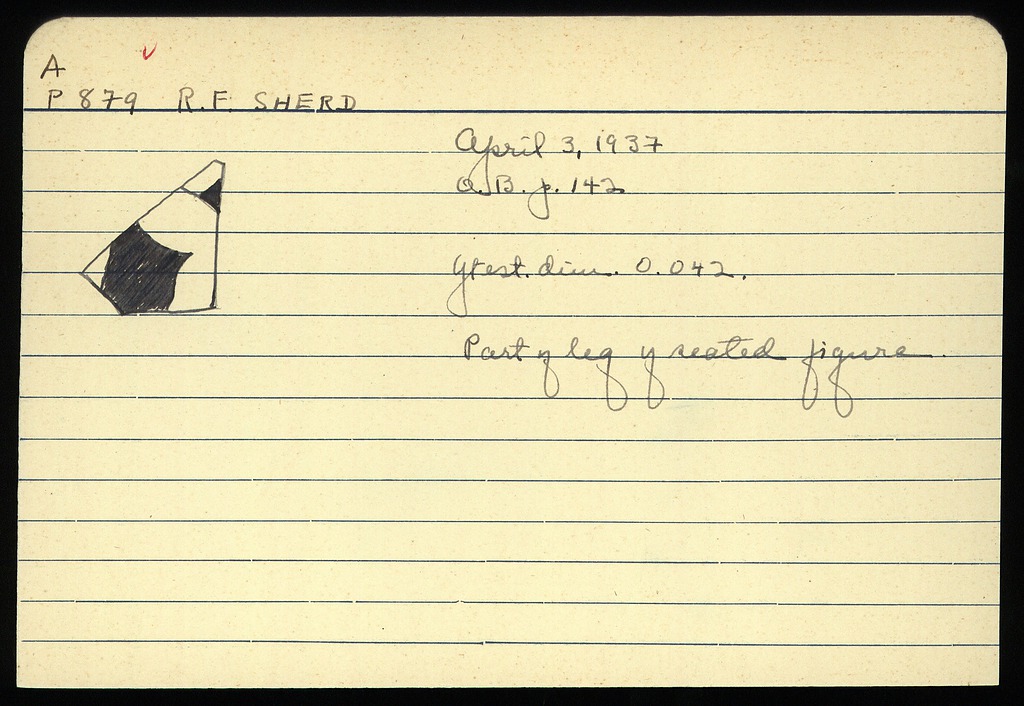 A
P 879 R.F. SHERD
April 3, 1937
O.B. p. 142
Gtest. dim. 0.042.
Part of leg of seated figure.